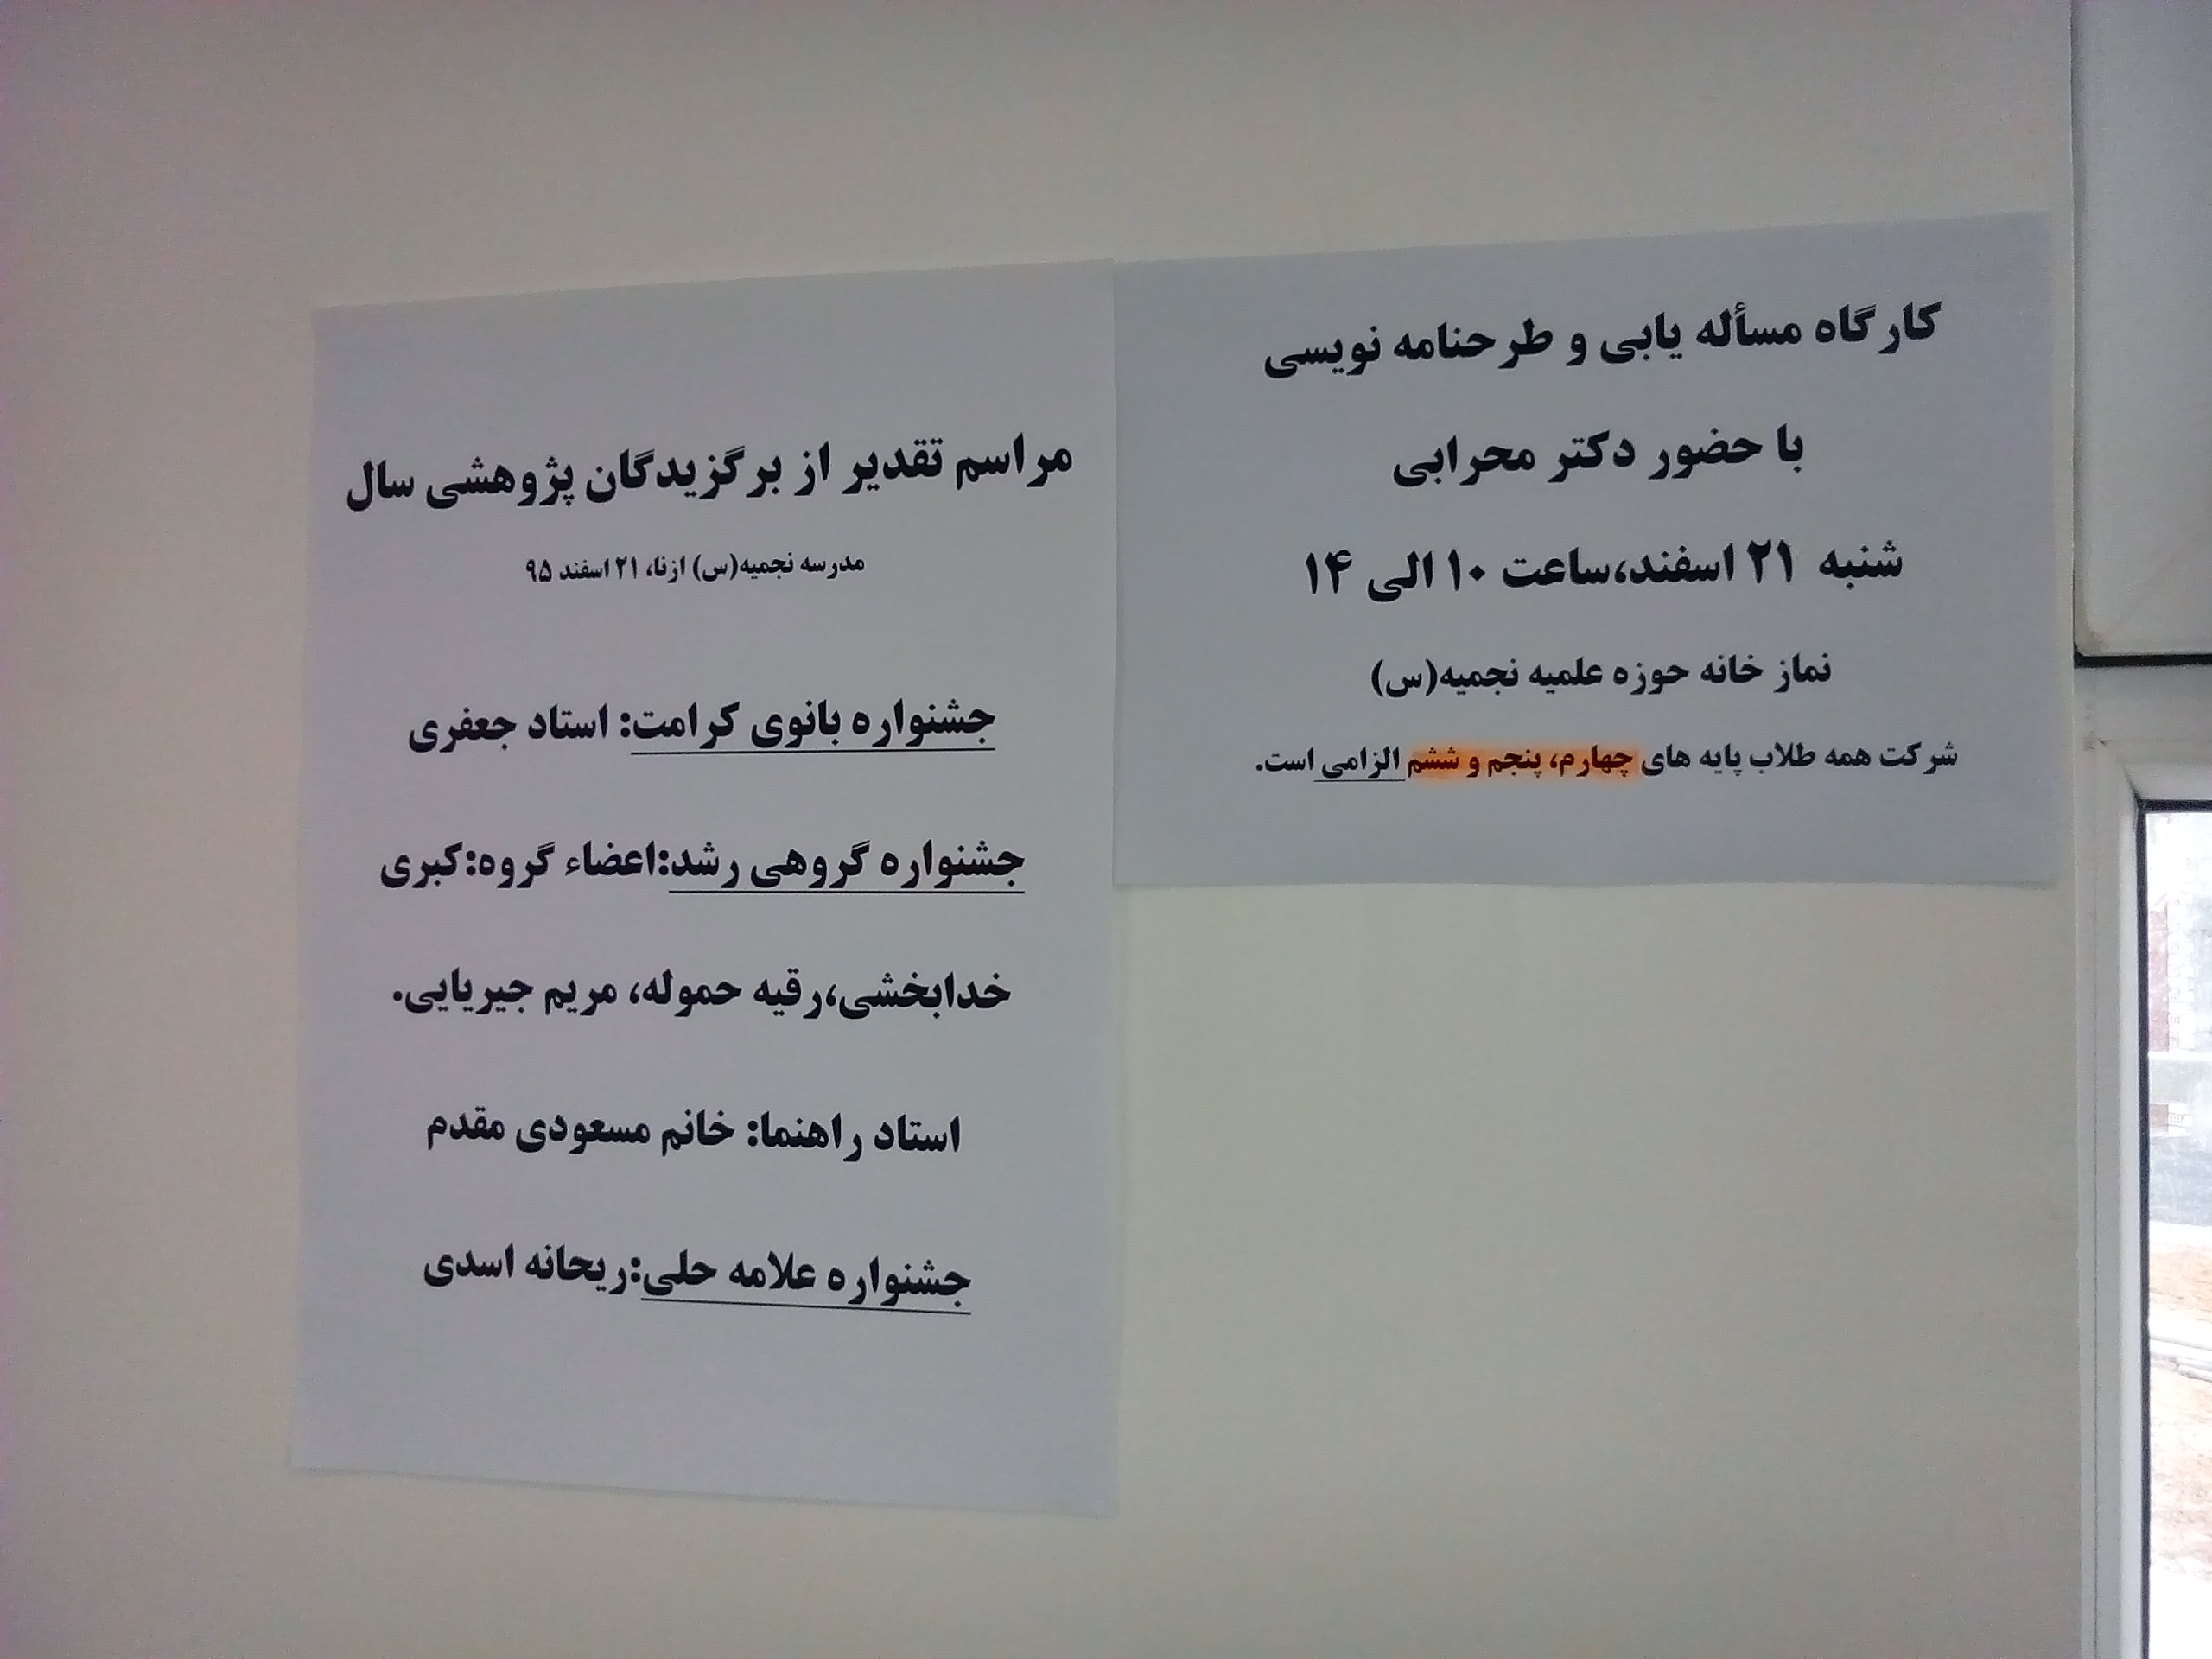 کارگاه مسأله یابی و طرحنامه نویسی
با حضور دکتر محرابی
شنبه ۲۱ اسفند،ساعت ۱۰ الی ۱۴
نماز خانه حوزه علمیه نجمیه(س)
شرکت همه طلاب پایه های چهارم، پنجم و ششم الزامی است.
مراسم تقدیر از برگزیدگان پژوهشی سال
مدرسه نجمیه(س) ازنا، ۲۱ اسفند ۹۵
جشنواره بانوی کرامت: استاد جعفری
جشنواره گروهی رشد:اعضاء گروه:کبری
خدابخشی،رقیه حموله، مریم جیریایی.
استاد راهنما: خانم مسعودی مقدم
جشنواره علامه حلی:ریحانه اسدی